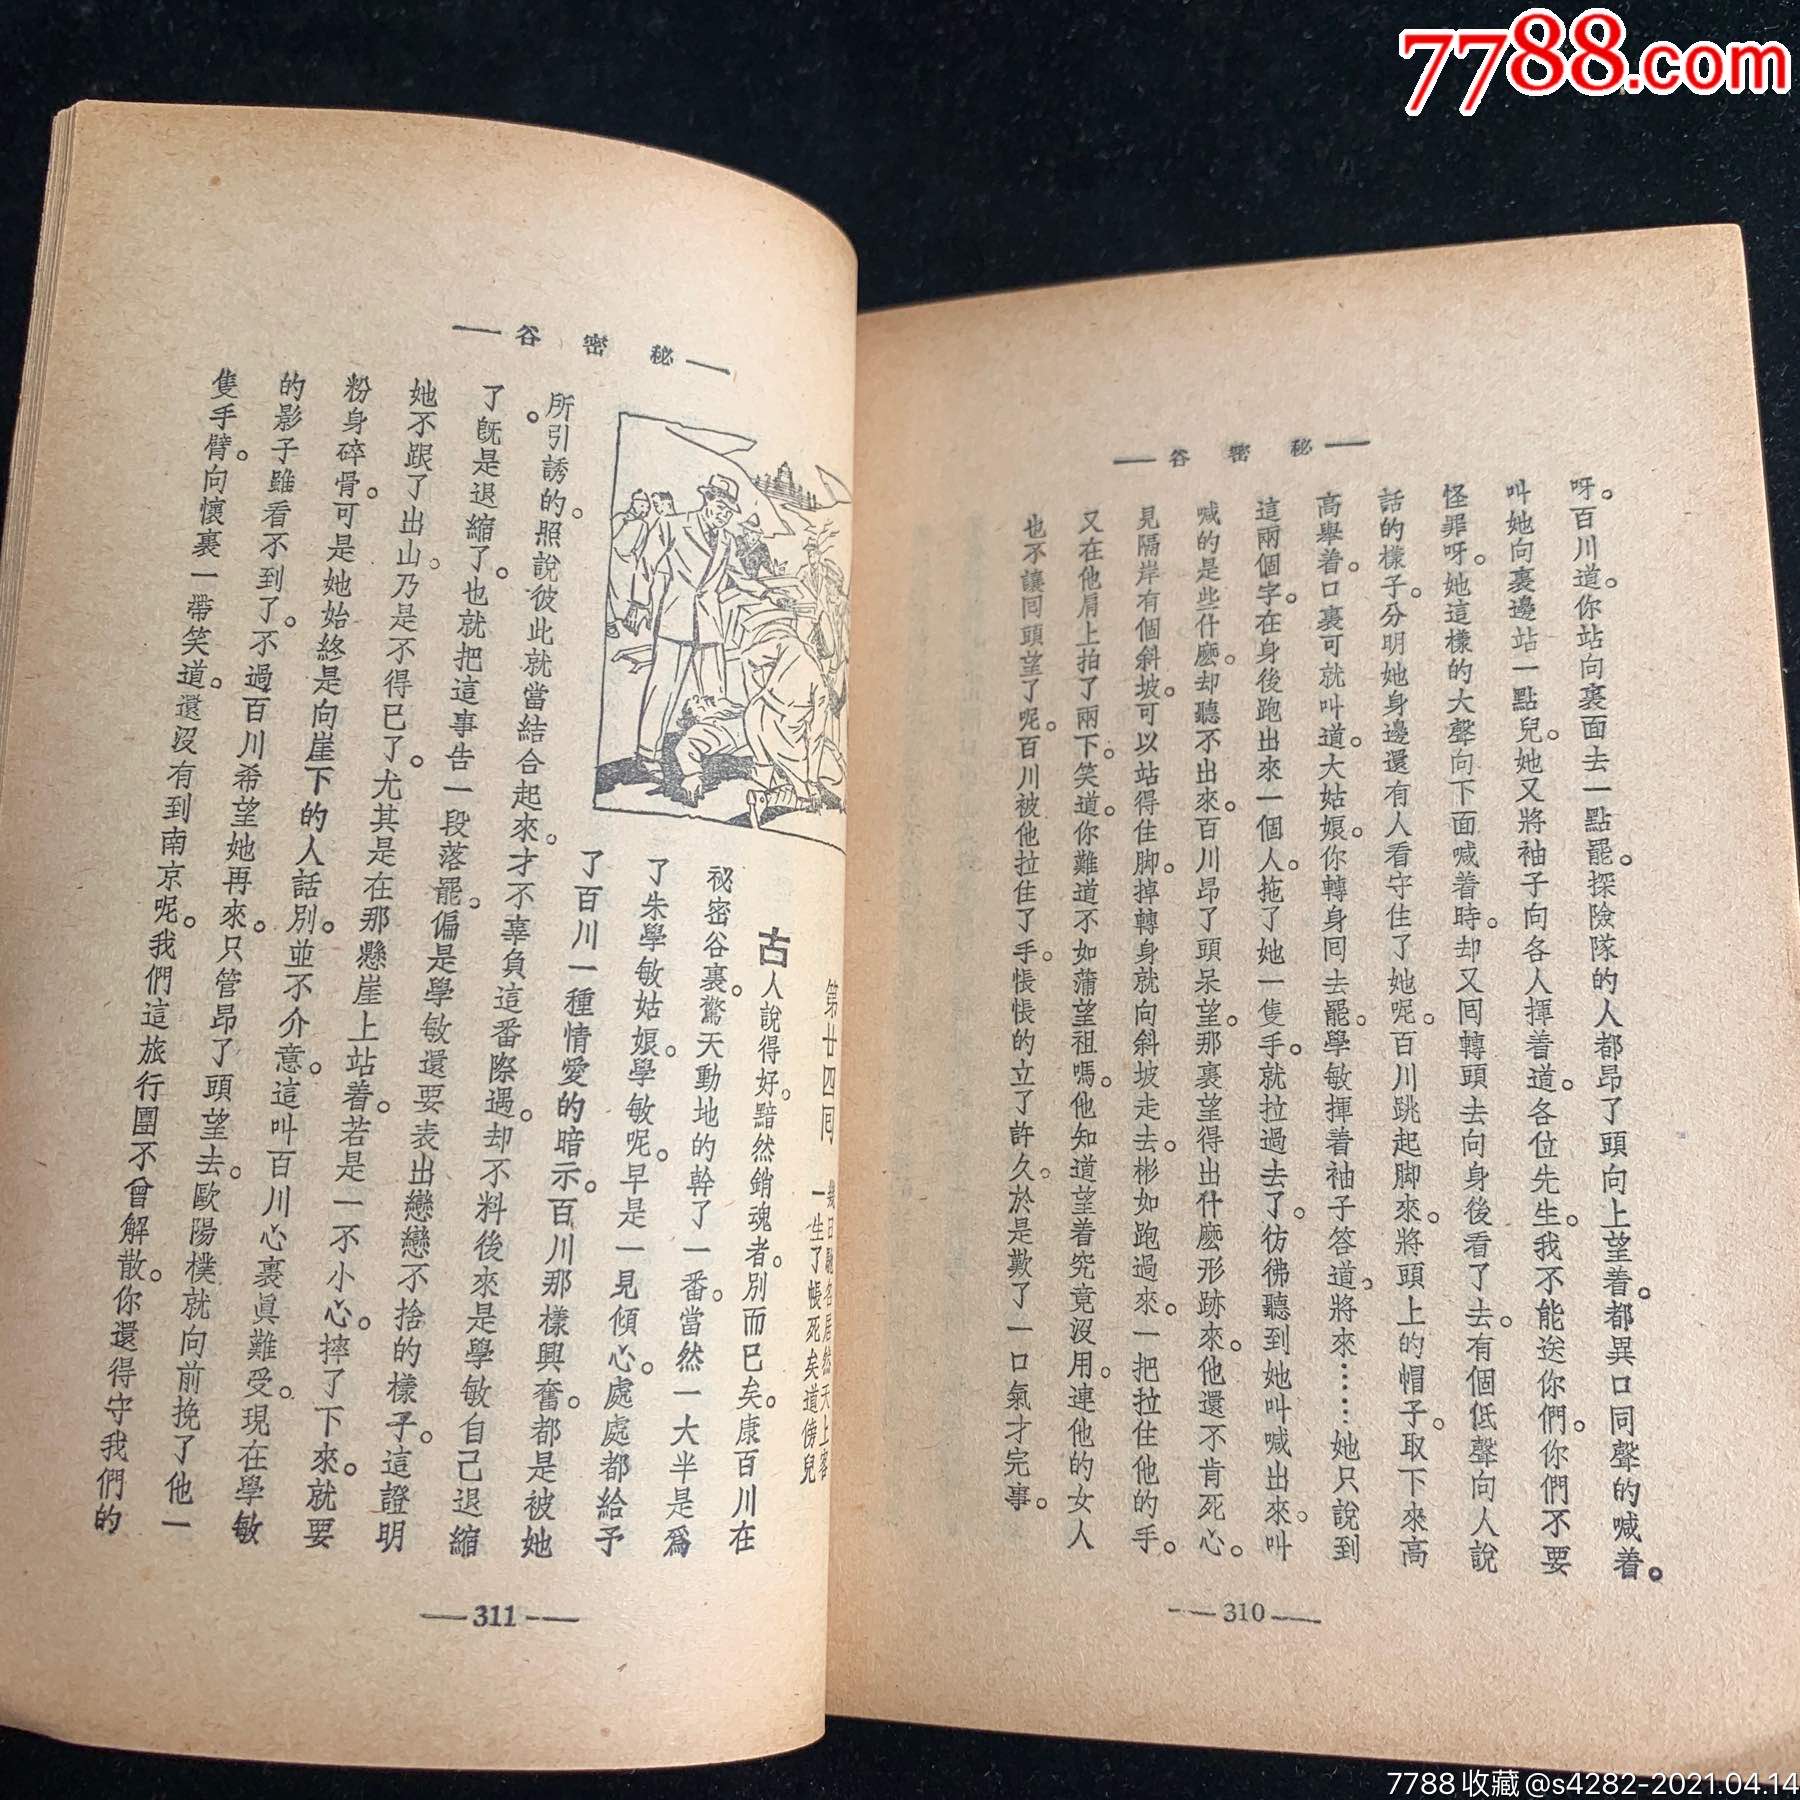 7788.com
— 秘密谷 —
呀。百川道。你站向裏面去一點罷。探險隊的人都昂了頭向上望着。都異口同聲的喊着。
叫她向裏邊站一點兒。她又將袖子向各人揮着道。各位先生。我不能送你們。你們不要
怪罪呀。她這樣的大聲向下面喊着時。却又囘轉頭去向身後看了去。有個低聲向人說
話的樣子。分明她身邊還有人看守住了她呢。百川跳起脚來。將頭上的帽子。取下來高
高舉着。口裏可就叫道。大姑娘。你轉身囘去罷。學敏揮着袖子答道。將來……她只說到
這兩個字。在身後跑出來一個人。拖了她一隻手。就拉過去了。彷彿聽到她叫喊出來。叫
喊的是些什麽。却聽不出來。百川昂了頭呆望。那裏望得出什麽形跡來。他還不肯死心。
見隔岸有個斜坡。可以站得住脚。掉轉身就向斜坡走去。彬如跑過來。一把拉住他的手。
又在他肩上拍了兩下。笑道。你難道不如蒲望祖嗎。他知道望着究竟沒用。連他的女人
也不讓囘頭望了呢。百川被他拉住了手。悵悵的立了許久。於是歎了一口氣才完事。
— 310 —
— 秘密谷 —
第廿四囘
幾日馳名居然天上客
一生了帳死矣道傍兒
古人說得好。黯然銷魂者。別而已矣。康百川在
祕密谷裏。驚天動地的幹了一番。當然一大半是爲
了朱學敏姑娘。學敏呢。早是一見傾心。處處都給予
了百川一種情愛的暗示。百川那樣興奮。都是被她
所引誘的。照說彼此就當結合起來。才不辜負這番際遇。却不料後來是學敏自己退縮
了。旣是退縮了。也就把這事告一段落罷。偏是學敏還要表出戀戀不捨的樣子。這證明
她不跟了出山。乃是不得已了。尤其是在那懸崖上站着。若是一不小心。摔了下來。就要
粉身碎骨。可是她始終是向崖下的人話別。並不介意。這叫百川心裏眞難受。現在學敏
的影子雖看不到了。不過百川希望她再來。只管昂了頭望去。歐陽樸就向前挽了他一
隻手臂。向懷裏一帶笑道。還沒有到南京呢。我們這旅行團不曾解散。你還得守我們的
— 311 —
7788收藏@s4282-2021.04.14